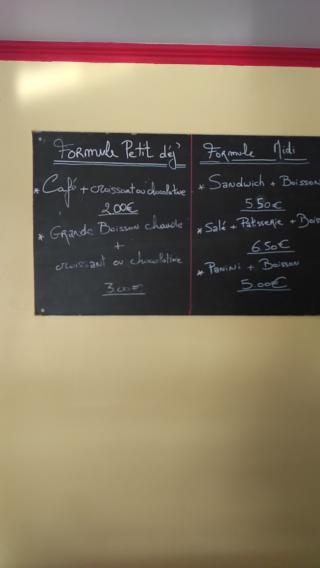 Formule Petit déj'
* Café + croissant ou chocolatine
2.00€
* Grande Boisson chaude
+
croissant ou chocolatine
3.00€
Formule Midi
* Sandwich + Boisson
5.50€
* Salé + Pâtisserie + Bois
6.50€
* Panini + Boisson
5.00€